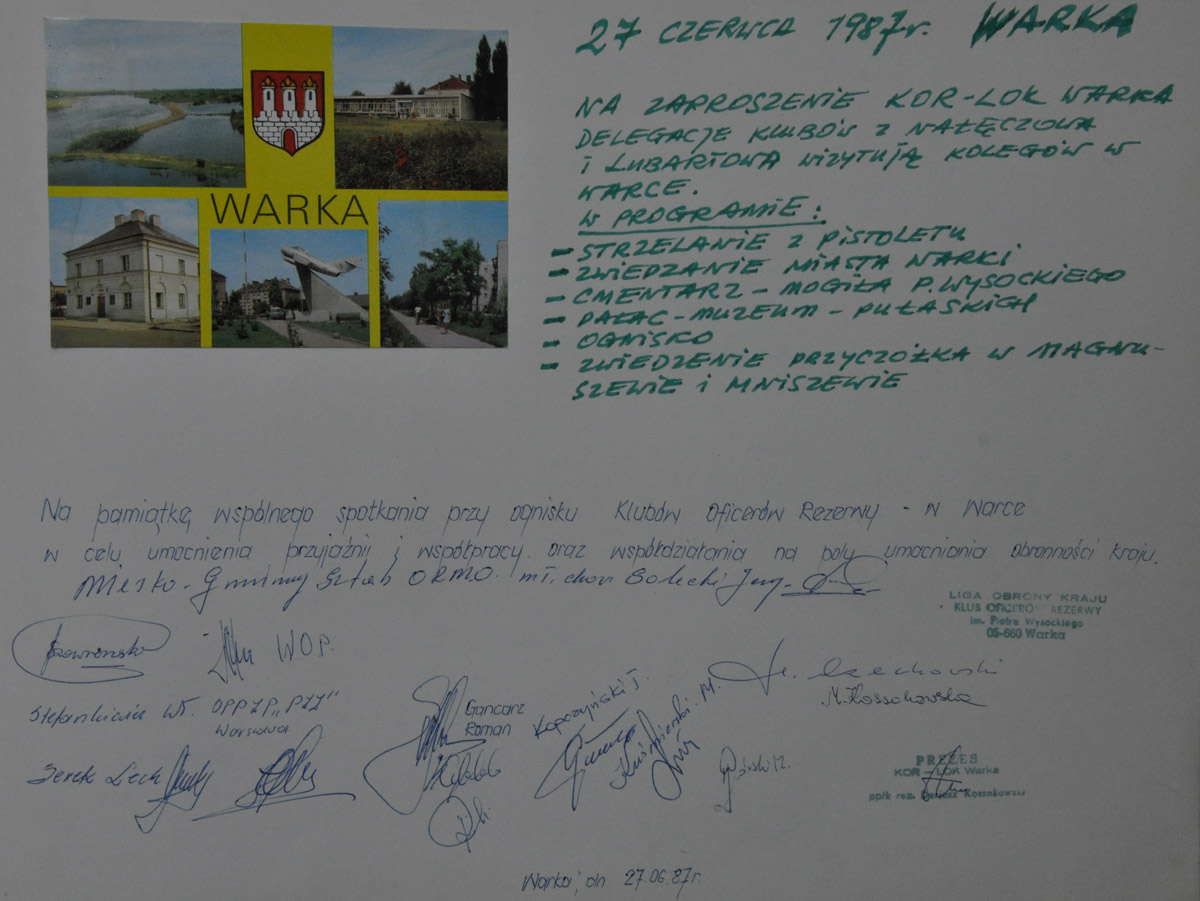 WARKA
27 CZERWCA 1987r. WARKA
NA ZAPROSZENIE KOR-LOK WARKA
DELEGACJE KLUBÓW Z NAŁĘCZOWA
I LUBARTOWA WIZYTUJĄ KOLEGÓW W
WARCE.
W PROGRAMIE:
- STRZELANIE Z PISTOLETU
- ZWIEDZANIE MIASTA WARKI
- CMENTARZ - MOGIŁA P. WYSOCKIEGO
- PAŁAC - MUZEUM - PUŁASKICH
- OGNISKO
- ZWIEDZENIE PRZYCZÓŁKA W MAGNU-
SZEWIE I MNISZEWIE
Na pamiątkę wspólnego spotkania przy ognisku Klubów Oficerów Rezerwy - w Warce
w celu umocnienia przyjaźnij i współpracy oraz współdziałania na polu umacniania obronności kraju.
Miesko - Gminny Sztab ORMO. mł. chor Golecki
LIGA OBRONY KRAJU
KLUB OFICERÓW REZERWY
im. Piotra Wysockiego
05-660 Warka
WOP.
Stefankiewicz Wł. OPPZP "PZZ"
Warszawa
Gancarz
Roman
Kopczyński T.
M. Kossakowska
PREZES
KOR - LOK Warka
ppłk rez. Dariusz Kossakowski
Warka, dn 27.06.87r.